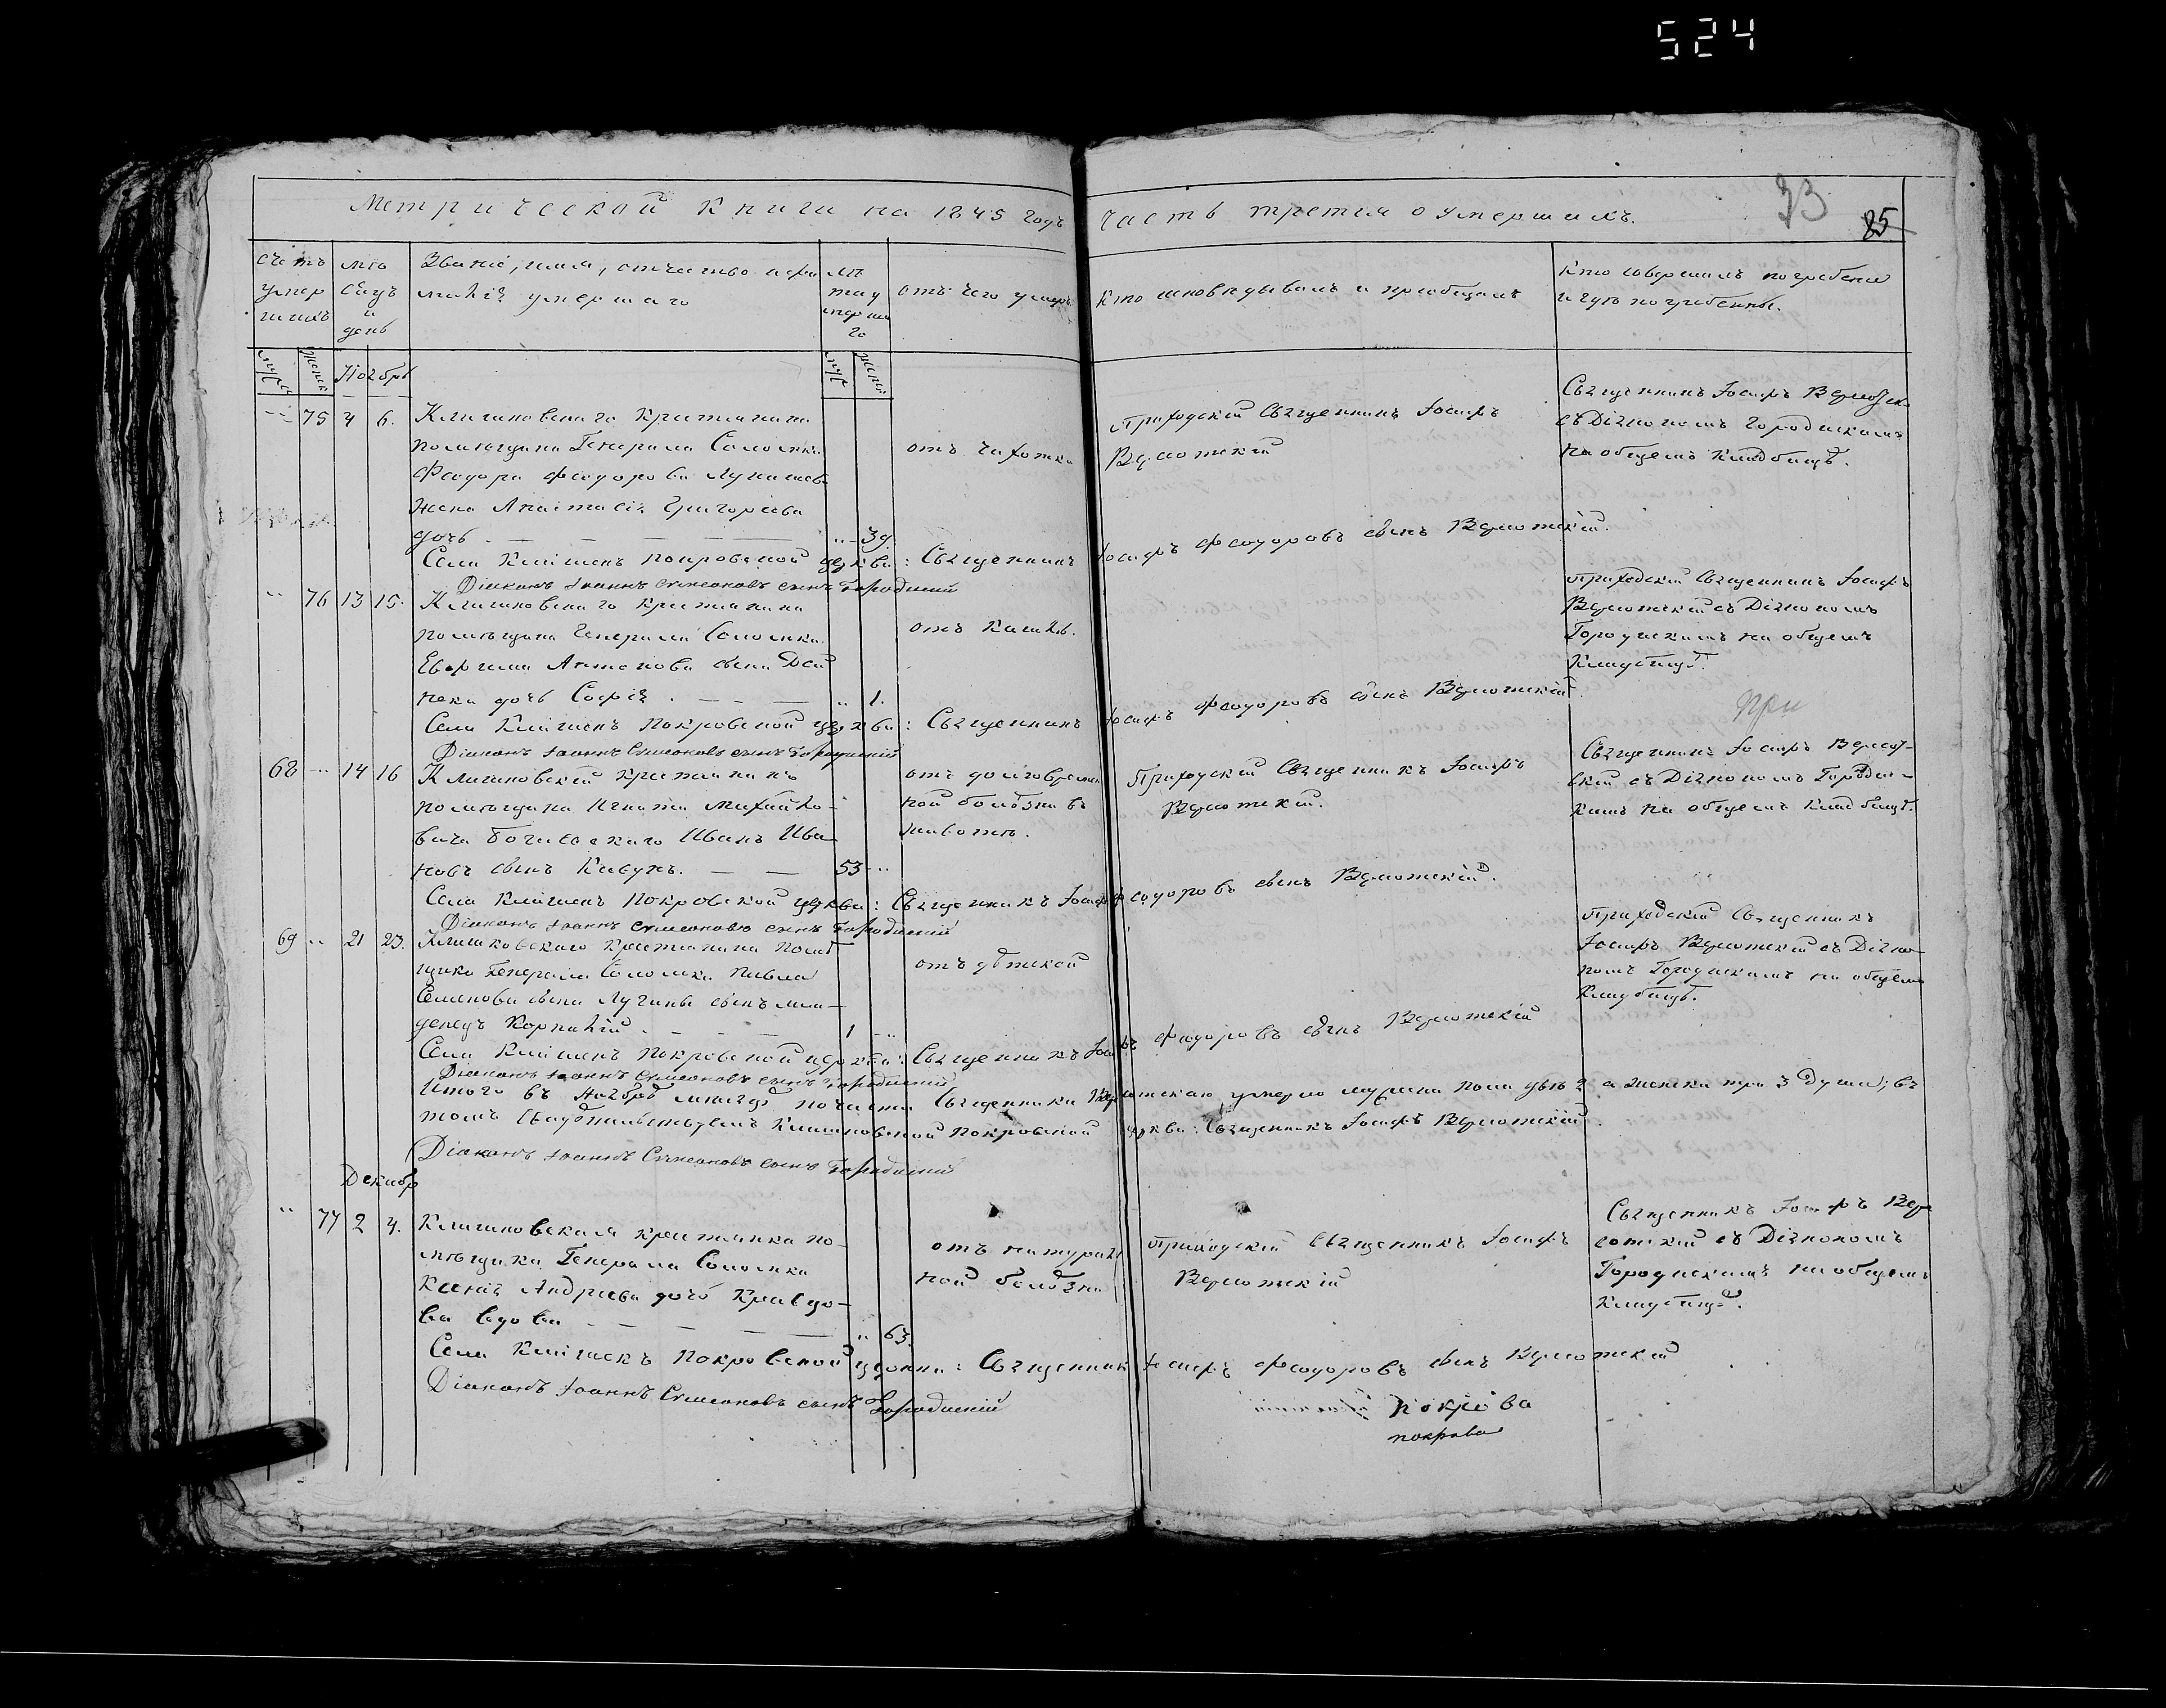 524
Метрической Книги на 1845 годъ часть третия о умершихъ.
33
85
счетъ умер шихъ
мѣ сяцъ и день
Званіе, имя, отчество и фа милія умершаго
лѣ та у мерша го
отъ чего умеръ
Кто исповѣдывалъ и приобщалъ
Кто совершалъ погребеніе и гдѣ погребенны.
муж женск
Ноябрь
муж женс
75 4 6. Клишковскаго крестьянина
помѣщика Генерала Соломки
Феодора Феодорова
жена Анастасія Григорьева
дочь — — — — 39.
отъ чахотки
Приходскій Священникъ Іосифъ
Священникъ Іосифъ
съ Діакономъ Городискимъ
на общемъ кладбищѣ.
Села Клишекъ Покровской церкви: Священникъ Іосифъ Феодоровъ сынъ
Діаконъ Іоаннъ Симеоновъ сынъ Городискій
76 13 15. Клишковскаго крестьянина
помѣщика Генерала Соломки
Антонова сына
дочь Софія . — — — 1.
отъ кашлю.
Приходскій Священникъ Іосифъ
съ Діакономъ
Городискимъ на общемъ
Кладбищѣ.
Села Клишекъ Покровской церкви: Священникъ Іосифъ Феодоровъ сынъ
Діаконъ Іоаннъ Симеоновъ сынъ Городискій
при
68 14 16 Клишковскій крестьянинъ
помѣщика Игната Михайло-
вича Иванъ Ива
новъ сынъ Кавунъ. — — 53
отъ долговремен
ной болѣзни въ
животѣ.
Приходскій Священникъ Іосифъ
Священникъ Іосифъ
съ Діакономъ Городис-
кимъ на общемъ кладбищѣ.
Села Клишекъ Покровской церкви: Священникъ Іосифъ Феодоровъ сынъ
Діаконъ Іоаннъ Симеоновъ сынъ Городискій
69 21 23. Клишковскаго крестьянина помѣ
щика Генерала Соломки Павла
Семенова сына сынъ мла-
денецъ Корнилій . — — — 1
отъ дѣтской
Приходскій Священникъ
Іосифъ съ Діако-
номъ Городискимъ на общемъ
Кладбищѣ.
Села Клишекъ Покровской церкви: Священникъ Іосифъ Феодоровъ сынъ
Діаконъ Іоаннъ Симеоновъ сынъ Городискій
Итого въ Ноябрѣ мѣсяцѣ по части Священника умерло мужска пола двѣ 2 а женска три 3 души; въ
томъ свидѣтельствуемъ Клишковской Покровской церкви: Священникъ Іосифъ
Діаконъ Іоаннъ Симеоновъ сынъ Городискій
Декабр
77 2 4. Клишковская крестьянка по-
мѣщика Генерала Соломки
Ксенія Андреева дочь Кравцо-
ва вдова — — — — 63.
отъ натураль
ной болѣзни
Приходскій Священникъ Іосифъ
Священникъ Іосифъ
съ Діакономъ
Городискимъ на общемъ
кладбищѣ.
Села Клишекъ Покровской церкви: Священникъ Іосифъ Феодоровъ сынъ
Діаконъ Іоаннъ Симеоновъ сынъ Городискій
покрова
покрова